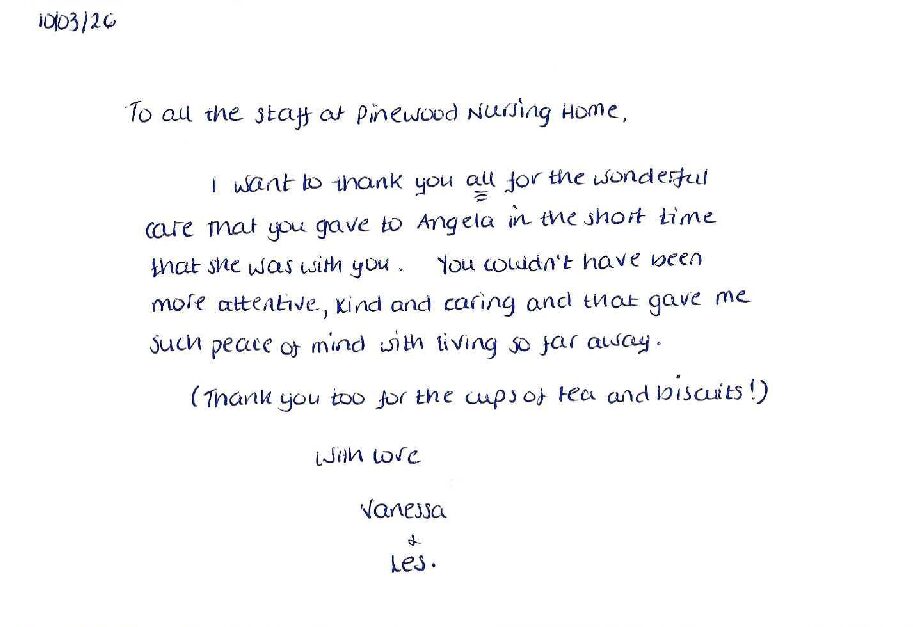 10/03/26
To all the staff at Pinewood Nursing Home,
I want to thank you all for the wonderful
care that you gave to Angela in the short time
that she was with you. You couldn't have been
more attentive, kind and caring and that gave me
such peace of mind with living so far away.
(Thank you too for the cups of tea and biscuits!)
With love
Vanessa
&
Les.